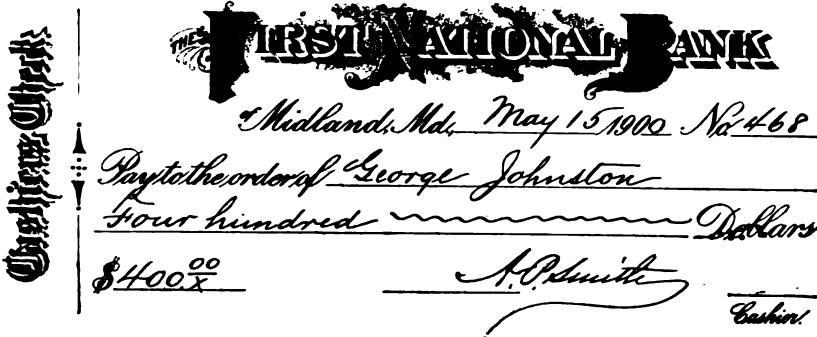 Cashiers Check
THE FIRST NATIONAL BANK
of Midland, Md., May 15 1900 No. 468
Pay to the order of George Johnston
Four hundred Dollars
$400.00/x A. P. Smith
Cashier.